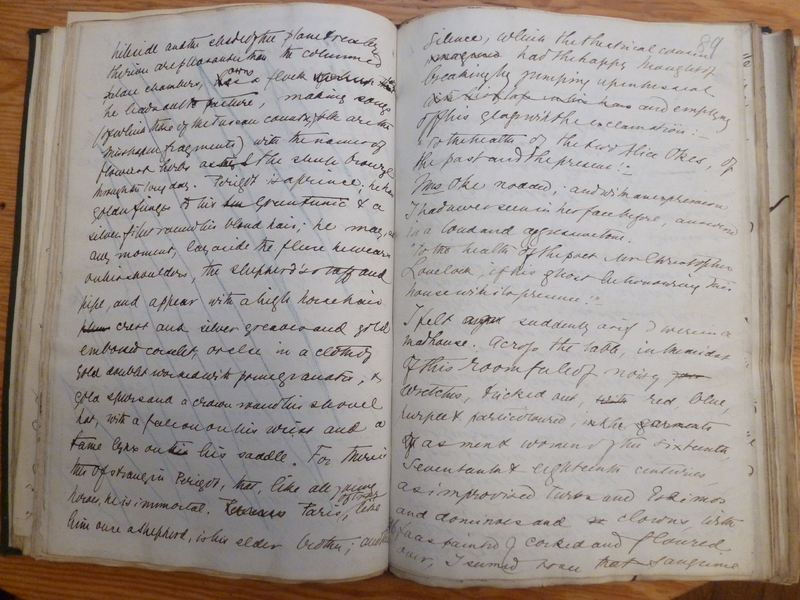 hillside and the shade of the plane tree by
therium are pleasanter than the columned
palace chambers, a flock
he leads out to pasture, making songs
(of which those of the Tuscan country folk are the
misshapen fragments) with the names of
flowerst herbs the shade
throughout long day. Perigot is a prince; he has
golden fringe to his green tunic & a
silver fillet round his blond hair; he may, at
any moment, lay aside the fleece he wears
on his shoulders, the shepherd's staff and
pipe, and appear with a high horsehair
crest and silver greaves and gold
embossed corselet, or else in a cloth of
gold doublet worked with pomegranates, &
gold spurs and a crown round his shovel
hat, with a falcon on his wrist and a
tame lynx on his saddle. For there is
this of strange in Perigot, that, like all young
heroes, he is immortal. Paris, like
him once a shepherd, is his elder brother; and
89
silence, when the theatrical cousin
had the happy thought of
breaking by jumping upon his seat
and emptying
off his glass with the exclamation:—
"To the health of the two Alice Okes, of
the past and the present!"
Mrs. Oke nodded, and with an expression
I had never seen in her face before, answered
in a loud and aggressive tone,
"To the health of the poet Mr. Christopher
Lovelock, if his ghost be honouring this
house with its presence!"
I felt suddenly as if I were in a
madhouse. Across the table, in the midst
of this room full of noisy
wretches, tricked out, red, blue,
purple & particoloured,
as men & women of the sixteenth,
seventeenth & eighteenth centuries,
as improvised Turks and Eskimos
and dominoes and clowns, with
faces painted & corked and floured
over, I seemed to see that sanguine